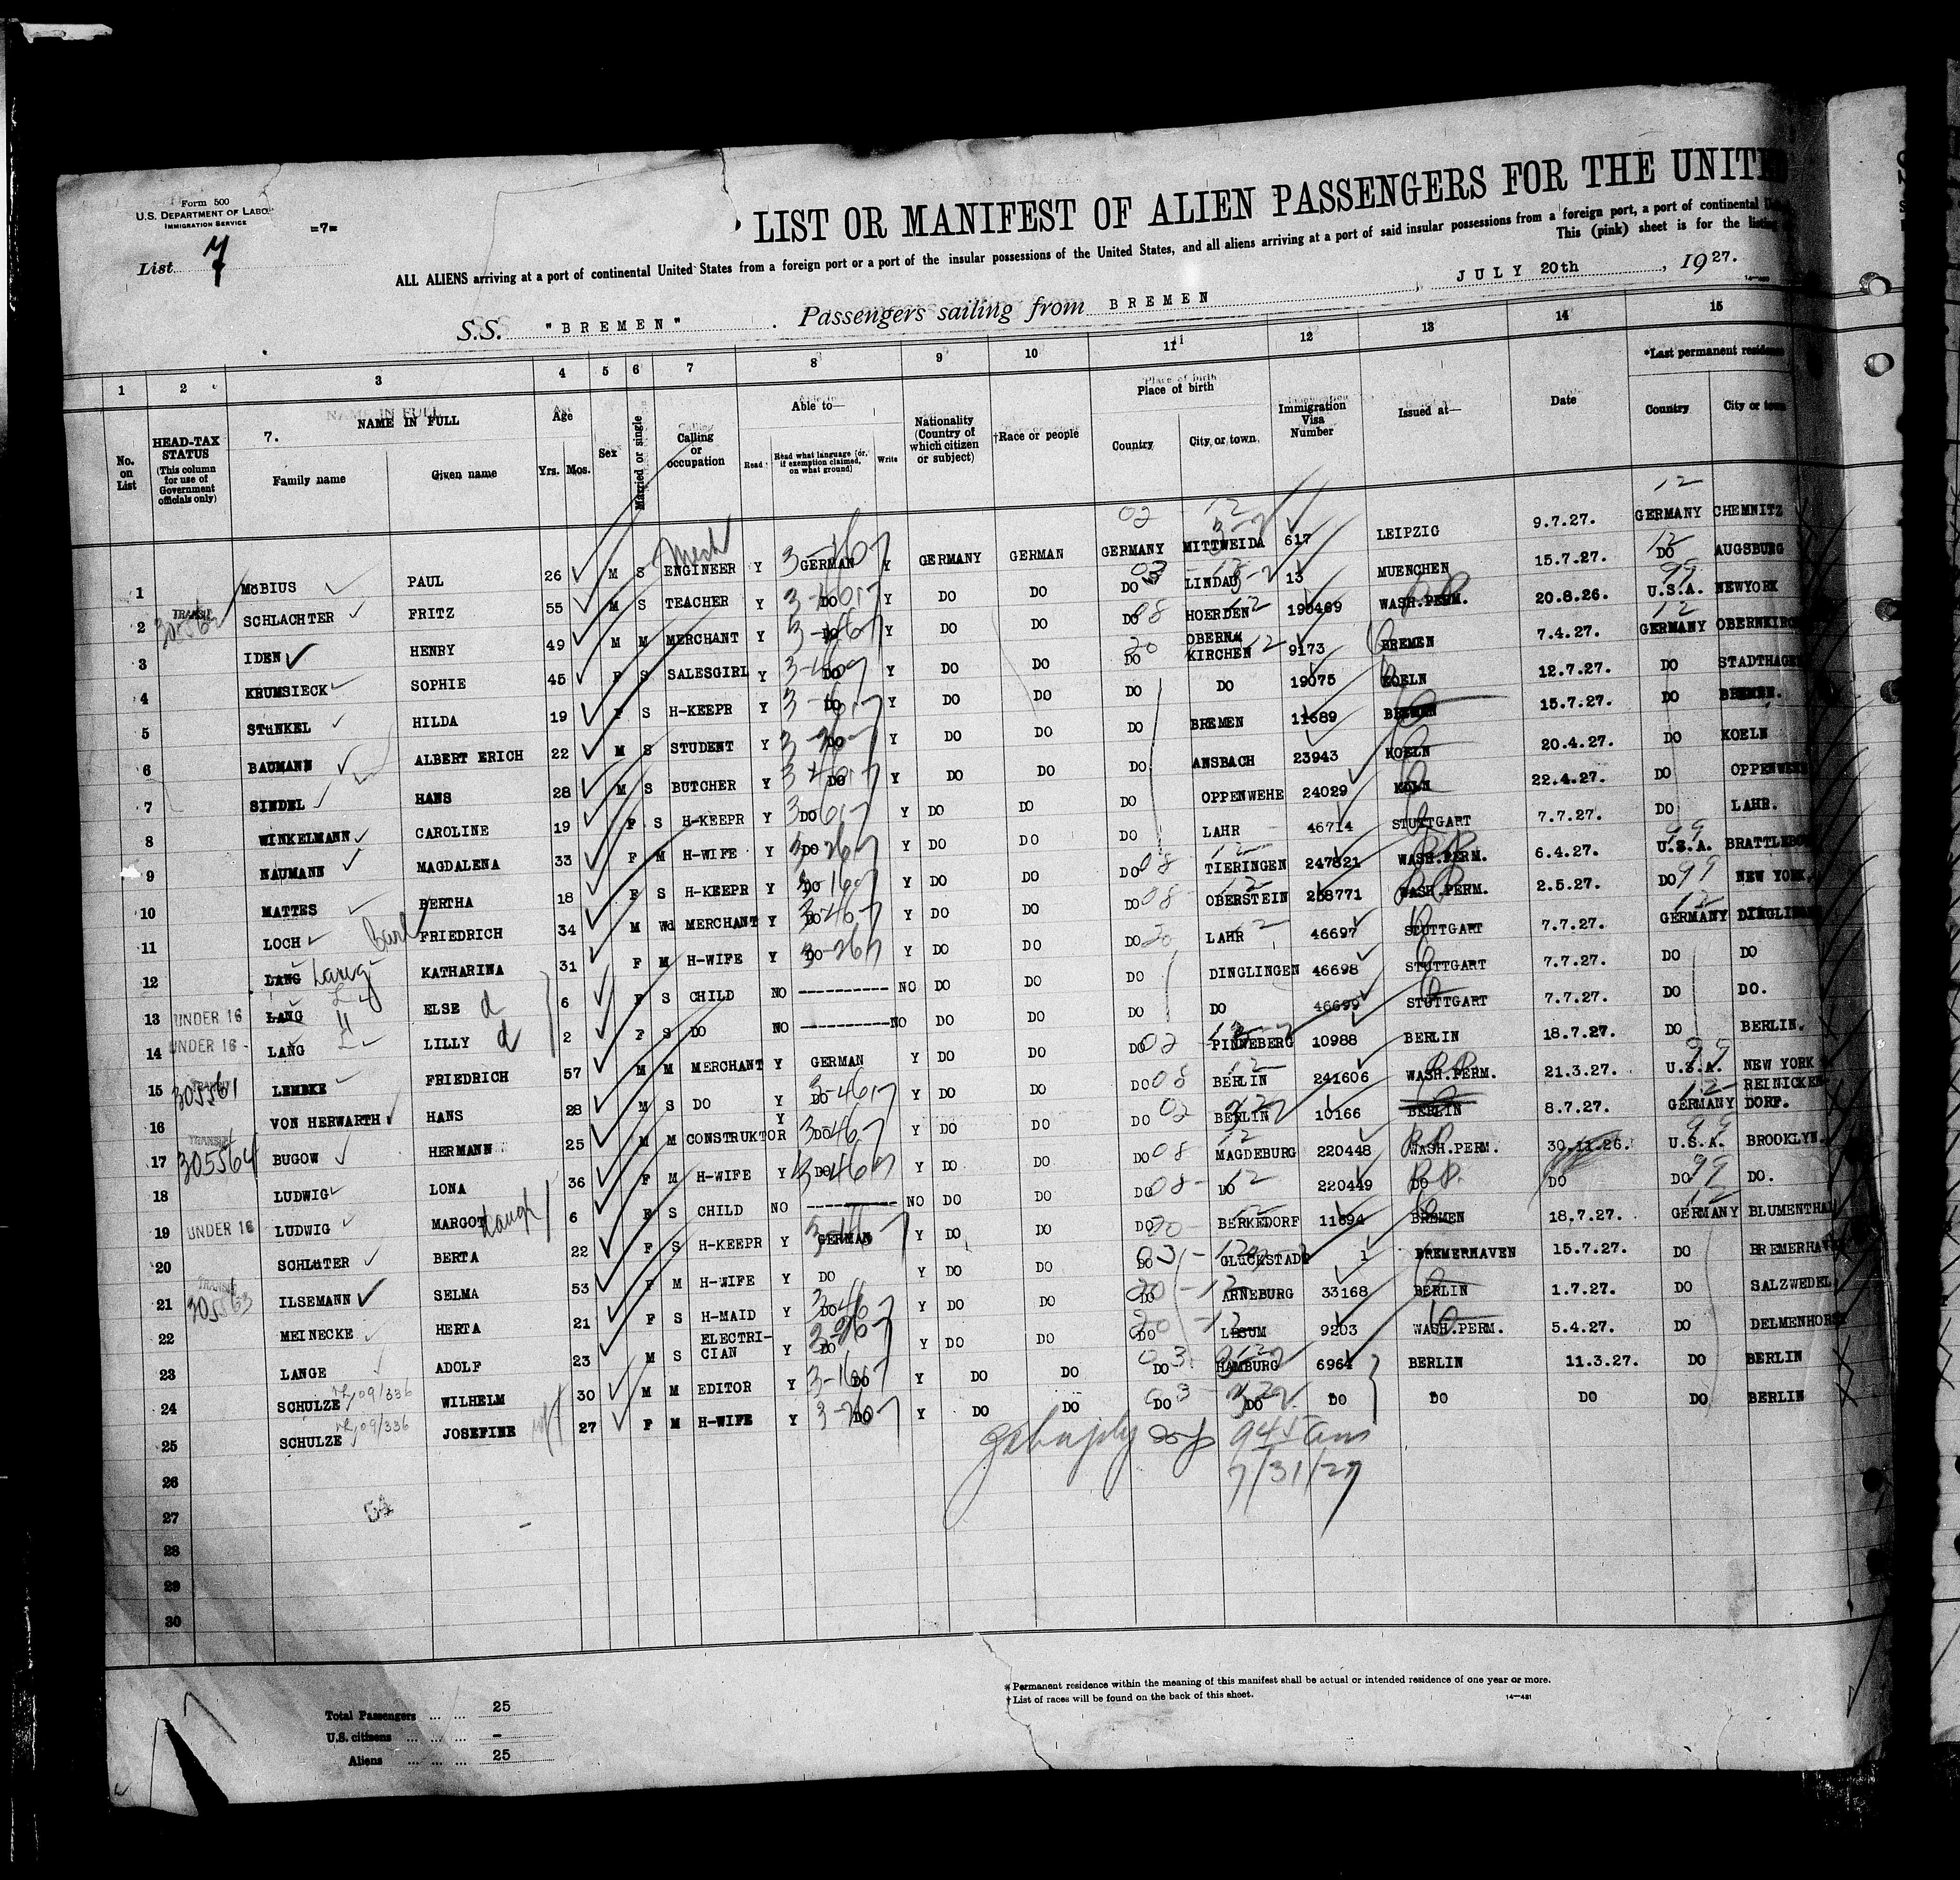 Form 500
U.S. DEPARTMENT OF LABO
IMMIGRATION SERVICE
=7=
List 7
LIST OR MANIFEST OF ALIEN PASSENGERS FOR THE UNITE
ALL ALIENS arriving at a port of continental United States from a foreign port or a port of the insular possessions of the United States, and all aliens arriving at a port of said insular possessions from a foreign port, a port of continental
This (pink) sheet is for the listing
S.S. "BREMEN" Passengers sailing from BREMEN, JULY 20th, 1927.
1 2 3 4 5 6 7 8 9 10 11 12 13 14 15
No. on List
HEAD-TAX STATUS (This column for use of Government officials only)
7. NAME IN FULL
Family name Given name
Age Yrs. Mos.
Sex
Married or single
Calling or occupation
Able to— Read Read what language [or, if exemption claimed, on what ground] Write
Nationality (Country of which citizen or subject)
†Race or people
Place of birth Country City or town
Immigration Visa Number
Issued at—
Date
*Last permanent residence Country City or town
1 MöBIUS PAUL 26 M S ENGINEER Mech Y GERMAN Y GERMANY GERMAN GERMANY MITTWEIDA 617 LEIPZIG 9.7.27. GERMANY CHEMNITZ
2 TRANSIT SCHLACHTER FRITZ 55 M S TEACHER Y DO Y DO DO DO LINDAU 13 MUENCHEN 15.7.27. DO AUGSBURG
3 IDEN HENRY 49 M M MERCHANT Y DO Y DO DO DO HOERDEN 190469 WASH.PERM. 20.8.26. U.S.A. NEWYORK
4 KRUMSIECK SOPHIE 45 F S SALESGIRL Y DO Y DO DO DO OBERNKIRCHEN 9173 BREMEN 7.4.27. GERMANY
5 STüNKEL HILDA 19 F S H-KEEPR Y DO Y DO DO DO DO 19075 KOELN 12.7.27. DO STADTHAGEN
6 BAUMANN ALBERT ERICH 22 M S STUDENT Y DO Y DO DO DO BREMEN 11689 BREMEN 15.7.27. DO BREMEN.
7 SINDEL HANS 28 M S BUTCHER Y DO Y DO DO DO ANSBACH 23943 KOELN 20.4.27. DO KOELN
8 WINKELMANN CAROLINE 19 F S H-KEEPR Y DO Y DO DO DO OPPENWEHE 24029 22.4.27. DO
9 NAUMANN MAGDALENA 33 F M H-WIFE Y DO Y DO DO DO LAHR 46714 STUTTGART 7.7.27. DO LAHR.
10 MATTES BERTHA 18 F S H-KEEPR Y DO Y DO DO DO TIERINGEN 247821 WASH.PERM. 6.4.27. U.S.A.
11 LOCH FRIEDRICH 34 M Wd MERCHANT Y DO Y DO DO DO OBERSTEIN 268771 WASH.PERM. 2.5.27. DO NEW YORK.
12 LANG Lang KATHARINA 31 F M H-WIFE Y DO Y DO DO DO LAHR 46697 STUTTGART 7.7.27. GERMANY
13 UNDER 16 LANG ELSE d 6 F S CHILD NO ---------- NO DO DO DO DINGLINGEN 46698 STUTTGART 7.7.27. DO DO
14 UNDER 16 LANG LILLY d 2 F S DO NO ---------- NO DO DO DO DO 46699 STUTTGART 7.7.27. DO DO.
15 TRANSIT 305561 LEMBKE FRIEDRICH 57 M M MERCHANT Y GERMAN Y DO DO DO PINNEBERG 10988 BERLIN 18.7.27. DO BERLIN.
16 VON HERWARTH HANS 28 M S DO Y DO Y DO DO DO BERLIN 241606 WASH.PERM. 21.3.27. U.S.A. NEW YORK
17 TRANSIT 305564 BUGOW HERMANN 25 M M CONSTRUKTOR Y DO Y DO DO DO BERLIN 10166 BERLIN 8.7.27. GERMANY REINICKENDORF.
18 LUDWIG LONA 36 F M H-WIFE Y DO Y DO DO DO MAGDEBURG 220448 WASH.PERM. 30.11.26. U.S.A. BROOKLYN.
19 UNDER 16 LUDWIG MARGOT daugh 6 F S CHILD NO ---------- NO DO DO DO DO 220449 DO DO DO DO.
20 SCHLüTER BERTA 22 F S H-KEEPR Y GERMAN Y DO DO DO BERKEDORF 11694 BREMEN 18.7.27. GERMANY BLUMENTHAL
21 TRANSIT 305563 ILSEMANN SELMA 53 F M H-WIFE Y DO Y DO DO DO GLüCKSTADT 1 BREMERHAVEN 15.7.27. DO
22 MEINECKE HERTA 21 F S H-MAID Y DO Y DO DO DO ARNEBURG 33168 BERLIN 1.7.27. DO SALZWEDEL
23 LANGE ADOLF 23 M S ELECTRICIAN Y DO Y DO DO DO LESUM 9203 WASH.PERM. 5.4.27. DO DELMENHORST
24 SCHULZE 09/336 WILHELM 30 M M EDITOR Y DO Y DO DO DO HAMBURG 6964 BERLIN 11.3.27. DO BERLIN
25 SCHULZE 09/336 JOSEFINE wf 27 F M H-WIFE Y DO Y DO DO DO DO DO DO DO DO BERLIN
945 am
7/31/27
26
27
28
29
30
Total Passengers ... ... 25
U.S. citizens ... ... ... -
Aliens ... ... ... 25
* Permanent residence within the meaning of this manifest shall be actual or intended residence of one year or more.
† List of races will be found on the back of this sheet.
14—481